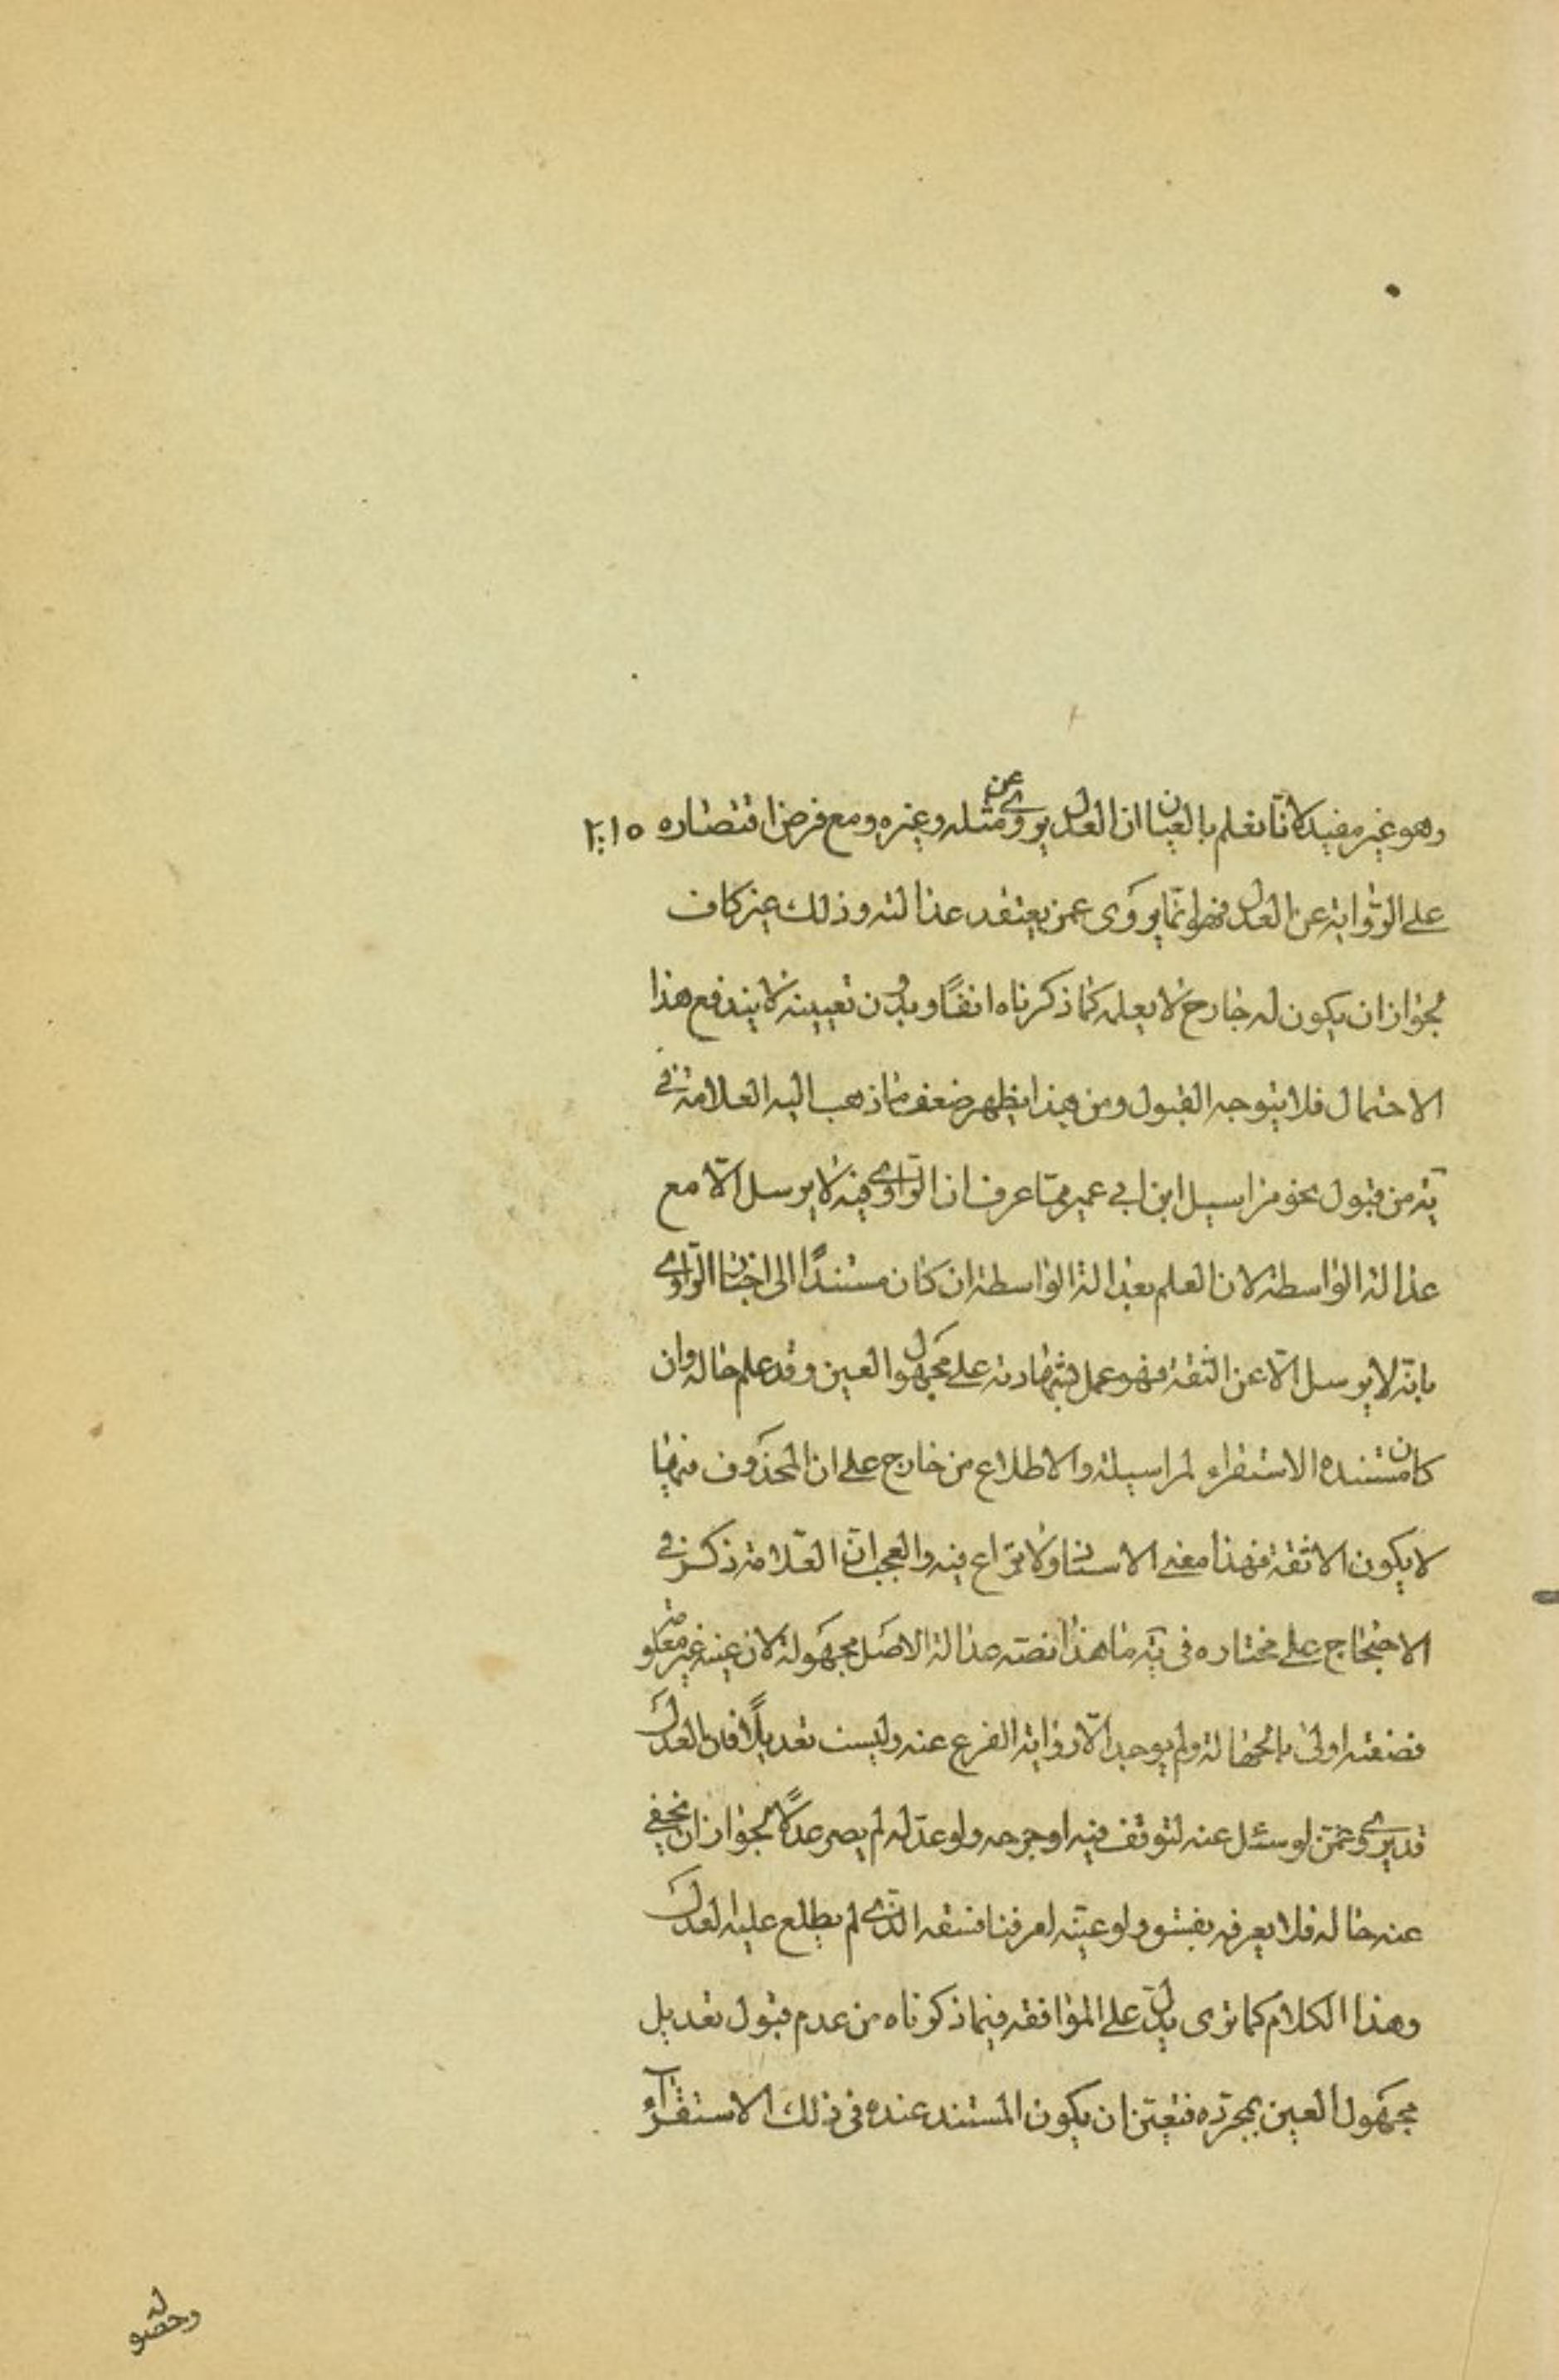 وهو غير مفيد لانا نعلم بالعيان ان العدل يروى عن مثله وغيره ومع فرض اقتصاره
على الرواية عن العدل فهو انما يروى عمن يعتقد عدالته وذلك غير كاف
لجواز ان يكون له جارح لا يعلمه كما ذكرناه انفًا وبدون تعيينه لا يندفع هذا
الاحتمال فلا يتوجه القبول ومن هذا يظهر ضعف ما ذهب اليه العلامة في
يه من قبول نحو مراسيل ابن ابي عمير مما عرف ان الراوي فيه لا يرسل الا مع
عدالة الواسطة لان العلم بعدالة الواسطة ان كان مستندًا الى اخبار الراوي
بانه لا يرسل الا عن الثقة فهو عمل بشهادته على مجهول العين وقد علم حاله وان
كان مستنده الاستقراء لمراسيله والاطلاع من خارج على ان المحذوف فيها
لا يكون الا ثقة فهذا معنى الاسناد ولا نزاع فيه والعجب ان العلامة ذكر في
الاحتجاج على مختاره في يه ما هذا نصه عدالة الاصل مجهولة لان عينه غير معلومة
فصفته اولى بالجهالة ولم يوجد الا رواية الفرع عنه وليست تعديلًا فان العدل
قد يروي عمن لو سئل عنه لتوقف فيه او جرحه ولو عدله لم يصر عدلًا لجواز ان يخفى
عنه حاله فلا يعرفه بفسق ولو عينه لعرفنا فسقه الذي لم يطلع عليه العدل
وهذا الكلام كما ترى يدل على الموافقه فيما ذكرناه من عدم قبول تعديل
مجهول العين بمجرده فتعين ان يكون المستند عنده في ذلك الاستقراء
وحصوله